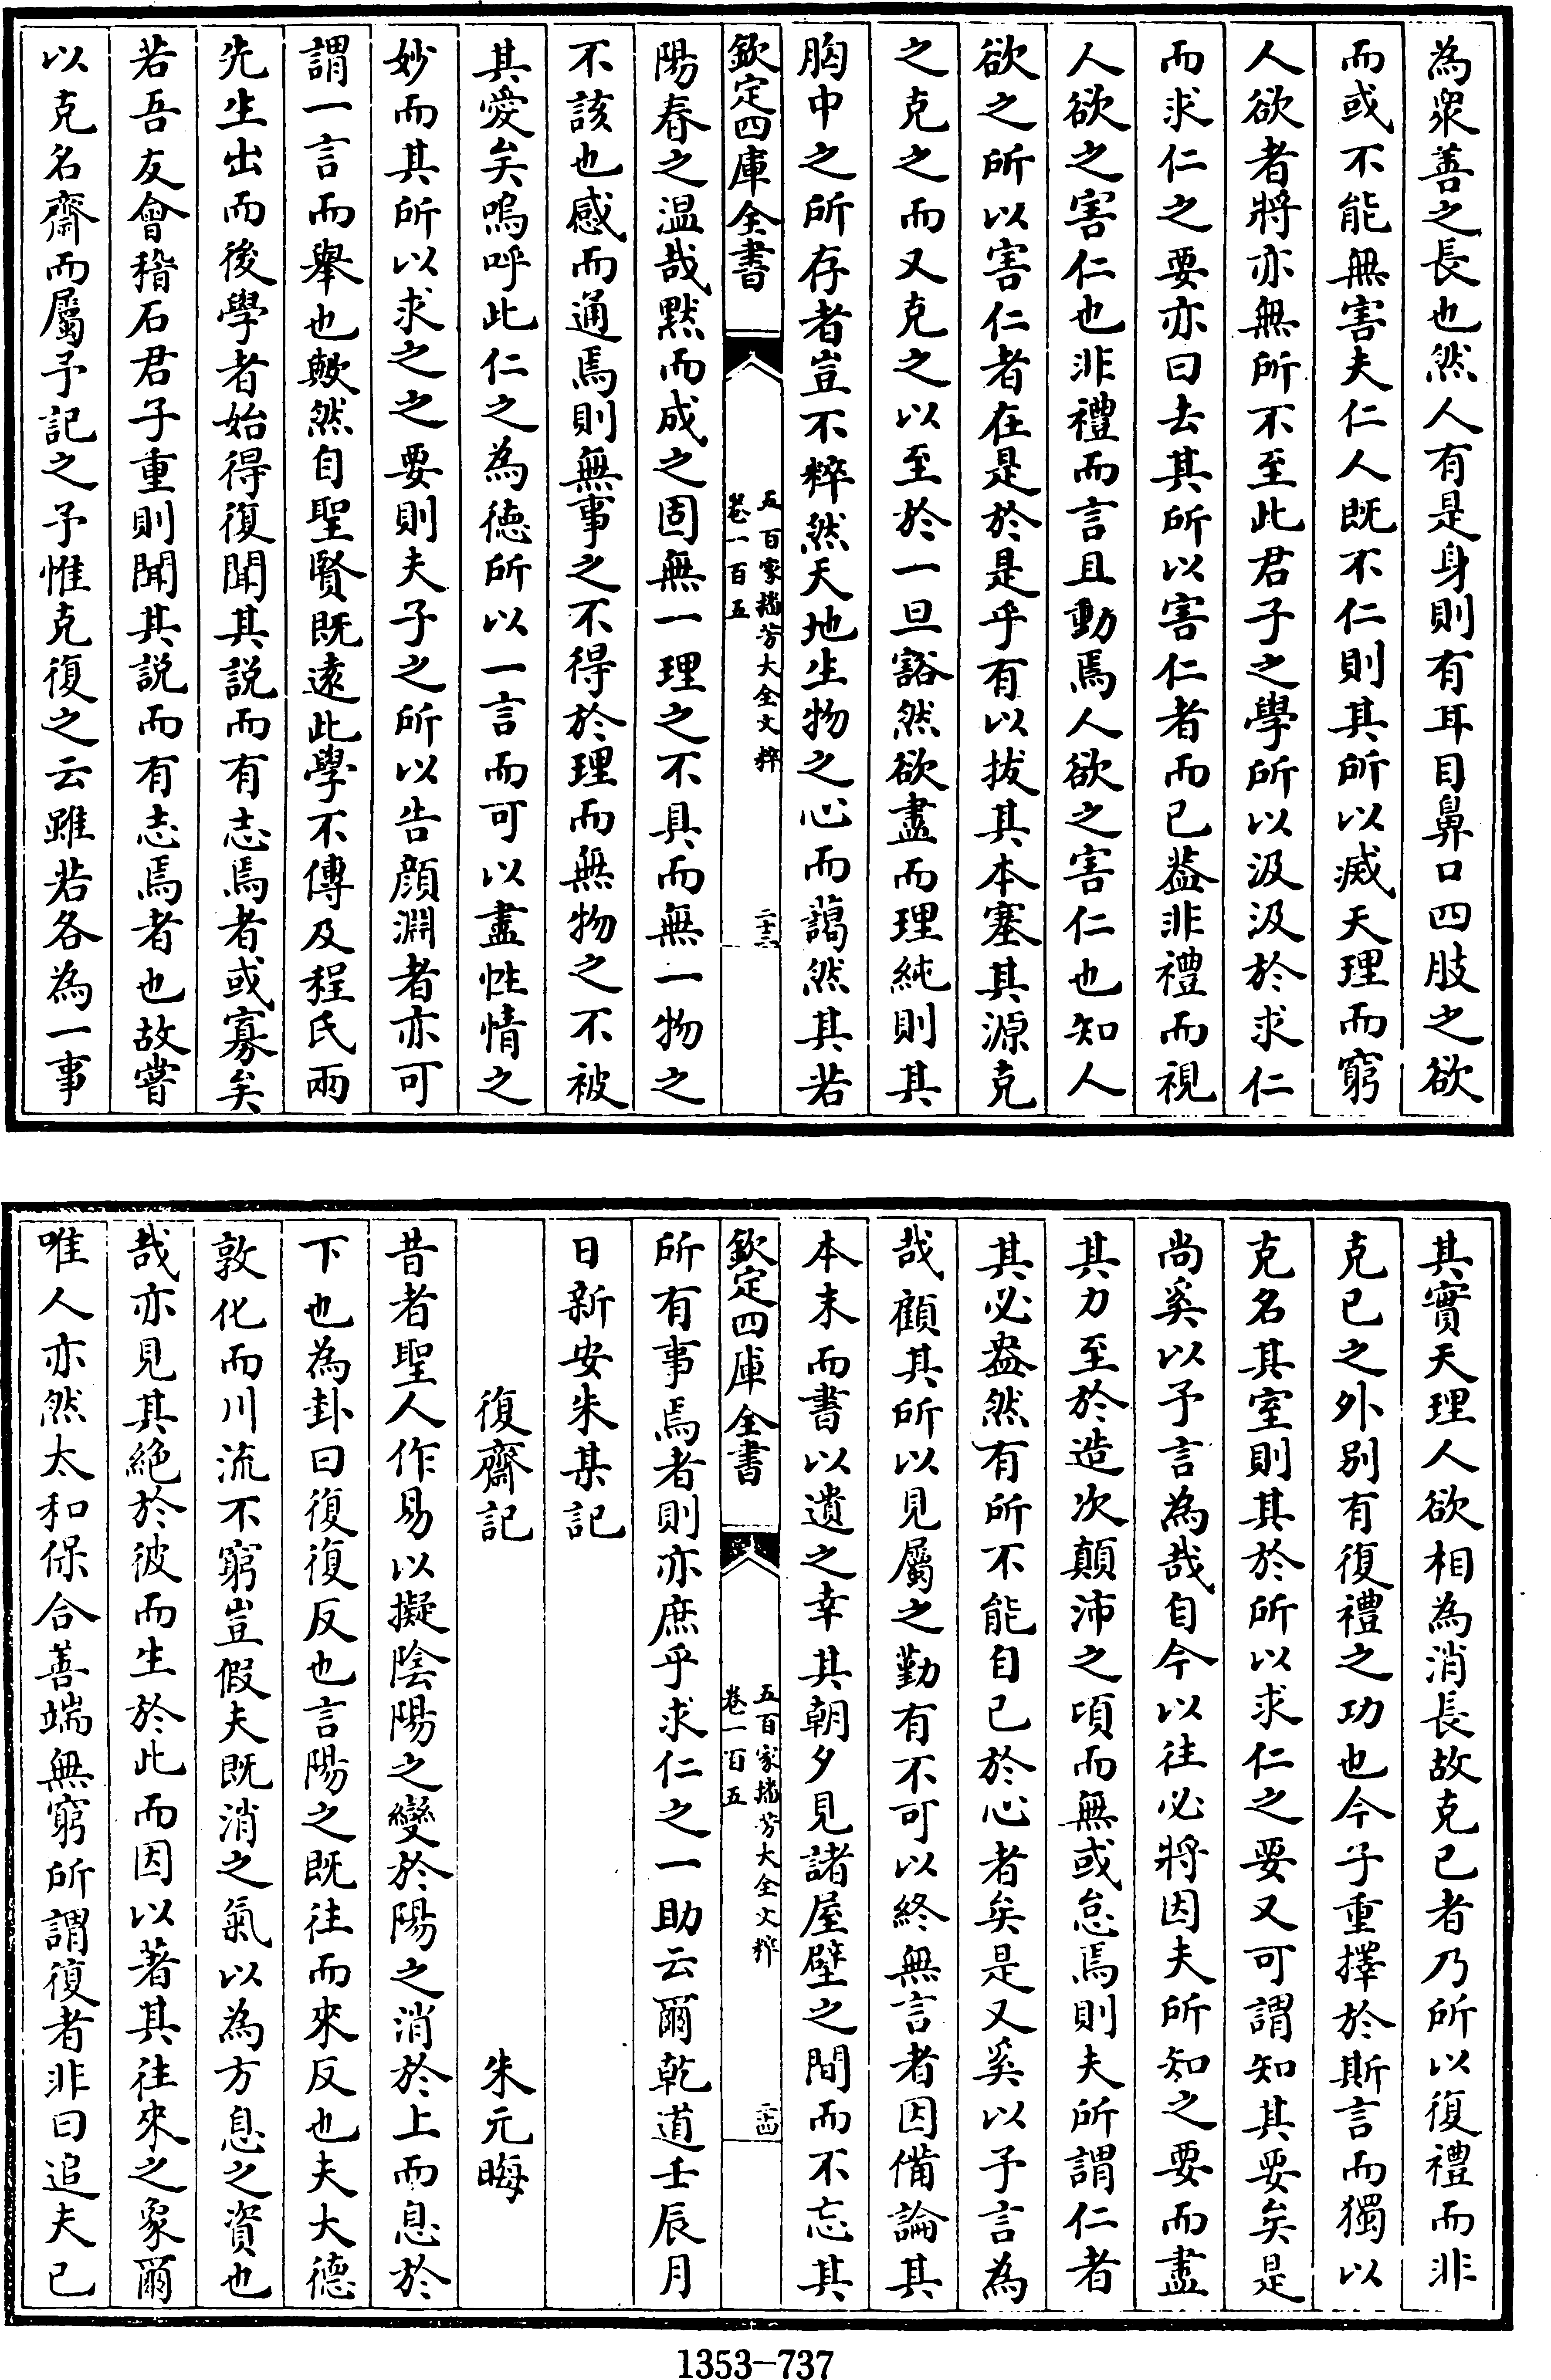 為衆善之長也然人有是身則有耳目鼻口四肢之欲
而或不能無害夫仁人既不仁則其所以滅天理而窮
人欲者將亦無所不至此君子之學所以汲汲於求仁
而求仁之要亦曰去其所以害仁者而已葢非禮而視
人欲之害仁也非禮而言且動焉人欲之害仁也知人
欲之所以害仁者在是於是乎有以拔其本塞其源克
之克之而又克之以至於一旦豁然欲盡而理純則其
胸中之所存者豈不粹然天地生物之心而藹然其若
欽定四庫全書
五百家播芳大全文粹
卷一百五
二十三
陽春之温哉黙而成之固無一理之不具而無一物之
不該也感而通焉則無事之不得於理而無物之不被
其愛矣嗚呼此仁之為徳所以一言而可以盡性情之
妙而其所以求之之要則夫子之所以告顔淵者亦可
謂一言而舉也歟然自聖賢既逺此學不傳及程氏兩
先生出而後學者始得復聞其説而有志焉者或寡矣
若吾友會稽石君子重則聞其説而有志焉者也故嘗
以克名齋而屬予記之予惟克復之云雖若各為一事
其實天理人欲相為消長故克已者乃所以復禮而非
克已之外别有復禮之功也今子重擇於斯言而獨以
克名其室則其於所以求仁之要又可謂知其要矣是
尚奚以予言為哉自今以往必將因夫所知之要而盡
其力至於造次顛沛之項而無或怠焉則夫所謂仁者
其必盎然有所不能自已於心者矣是又奚以予言為
哉顧其所以見屬之勤有不可以終無言者因備論其
本末而書以遺之幸其朝夕見諸屋壁之間而不忘其
欽定四庫全書
五百家播芳大全文粹
卷一百五
二十四
所有事焉者則亦庶乎求仁之一助云爾乾道壬辰月
日新安朱某記
復齋記 朱元晦
昔者聖人作易以擬陰陽之變於陽之消於上而息於
下也為卦曰復復反也言陽之既往而來反也夫大德
敦化而川流不窮豈假夫既消之氣以為方息之資也
哉亦見其絶於彼而生於此而因以著其往來之象爾
唯人亦然太和保合善端無窮所謂復者非曰追夫已
1353-737